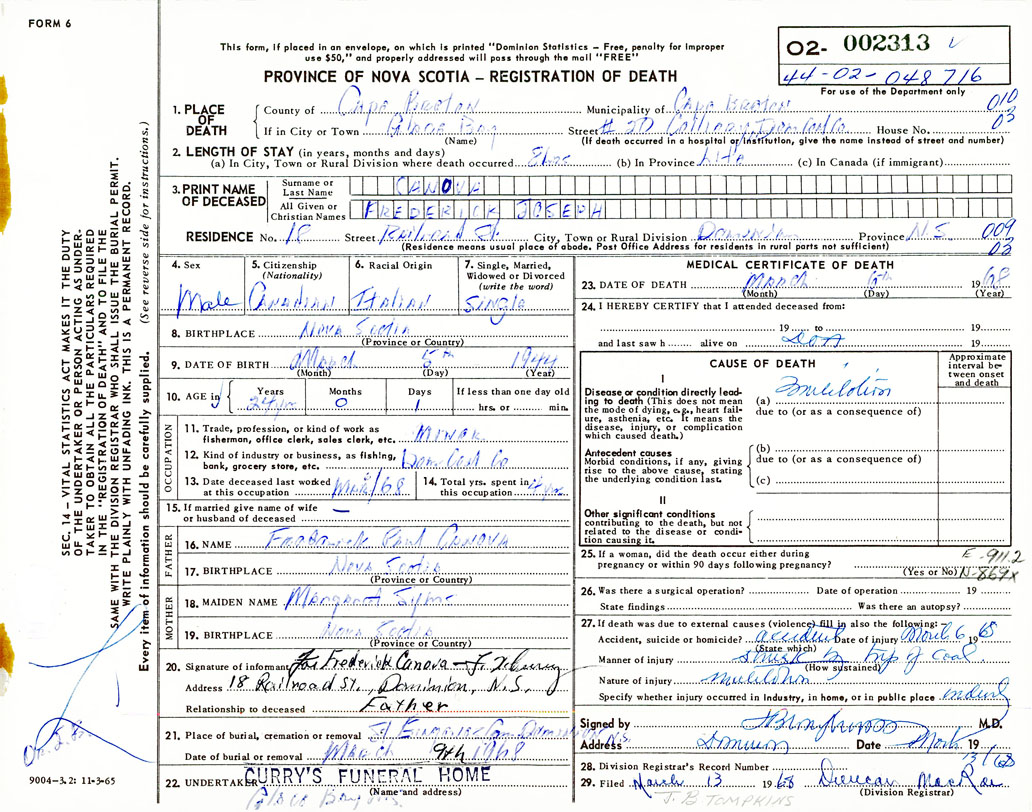 FORM 6
This form, if placed in an envelope, on which is printed "Dominion Statistics – Free, penalty for improper
use $50," and properly addressed will pass through the mail "FREE"
PROVINCE OF NOVA SCOTIA – REGISTRATION OF DEATH
02- 002313
44-02-048716
For use of the Department only
SEC. 14 – VITAL STATISTICS ACT MAKES IT THE DUTY
OF THE UNDERTAKER OR PERSON ACTING AS UNDER-
TAKER TO OBTAIN ALL THE PARTICULARS REQUIRED
IN THE "REGISTRATION OF DEATH" AND TO FILE THE
SAME WITH THE DIVISION REGISTRAR WHO SHALL ISSUE THE BURIAL PERMIT.
WRITE PLAINLY WITH UNFADING INK. THIS IS A PERMANENT RECORD.
Every item of information should be carefully supplied. (See reverse side for instructions.)
1. PLACE OF DEATH
County of Cape Breton Municipality of Cape Breton 010
If in City or Town Glace Bay Street # 20 Colliery, Dom Coal Co House No. 03
(Name) (If death occurred in a hospital or institution, give the name instead of street and number)
2. LENGTH OF STAY (in years, months and days)
(a) In City, Town or Rural Division where death occurred 8 hrs (b) In Province Life (c) In Canada (if immigrant)
3. PRINT NAME OF DECEASED
Surname or Last Name CANOVA
All Given or Christian Names FREDERICK JOSEPH
RESIDENCE No. 18 Street Railroad St. City, Town or Rural Division Dominion Province N.S. 009
(Residence means usual place of abode. Post Office Address for residents in rural parts not sufficient) 03
4. Sex
Male
5. Citizenship (Nationality)
Canadian
6. Racial Origin
Italian
7. Single, Married, Widowed or Divorced (write the word)
Single
8. BIRTHPLACE Nova Scotia
(Province or Country)
9. DATE OF BIRTH March 5th 1944
(Month) (Day) (Year)
10. AGE in Years Months Days If less than one day old
24 yrs 0 1 hrs. or min.
OCCUPATION
11. Trade, profession, or kind of work as fisherman, office clerk, sales clerk, etc. Miner
12. Kind of industry or business, as fishing, bank, grocery store, etc. Dom Coal Co
13. Date deceased last worked at this occupation /68
14. Total yrs. spent in this occupation yrs.
15. If married give name of wife or husband of deceased —
FATHER
16. NAME Frederick Paul Canova
17. BIRTHPLACE Nova Scotia
(Province or Country)
MOTHER
18. MAIDEN NAME Margaret
19. BIRTHPLACE Nova Scotia
(Province or Country)
20. Signature of informant For Frederick Canova –
Address 18 Railroad St., Dominion, N.S.
Relationship to deceased Father
21. Place of burial, cremation or removal
Date of burial or removal March 9th 1968
22. UNDERTAKER CURRY'S FUNERAL HOME
(Name and address)
Glace Bay N.S.
MEDICAL CERTIFICATE OF DEATH
23. DATE OF DEATH March 6th 1968
(Month) (Day) (Year)
24. I HEREBY CERTIFY that I attended deceased from:
19 to 19
and last saw h alive on DOA 19
CAUSE OF DEATH
Approximate interval between onset and death
I
Disease or condition directly leading to death (This does not mean the mode of dying, e.g., heart failure, asthenia, etc. It means the disease, injury, or complication which caused death.)
(a)
due to (or as a consequence of)
Antecedent causes
Morbid conditions, if any, giving rise to the above cause, stating the underlying condition last.
(b)
due to (or as a consequence of)
(c)
II
Other significant conditions
contributing to the death, but not related to the disease or condition causing it.
25. If a woman, did the death occur either during pregnancy or within 90 days following pregnancy?
(Yes or No)
E-911.2
N-869x
26. Was there a surgical operation? Date of operation 19
State findings Was there an autopsy?
27. If death was due to external causes (violence) fill in also the following:
Accident, suicide or homicide? accident Date of injury March 6 1968
(State which)
Manner of injury struck by trip of coal
(How sustained)
Nature of injury
Specify whether injury occurred in Industry, in home, or in public place
Signed by M.D.
Address Dominion N.S. Date March 19
13/68
28. Division Registrar's Record Number
29. Filed March 13 1968 Duncan MacRae
(Division Registrar)
J. B TOMPKINS
9004–3.2: 11-3-65